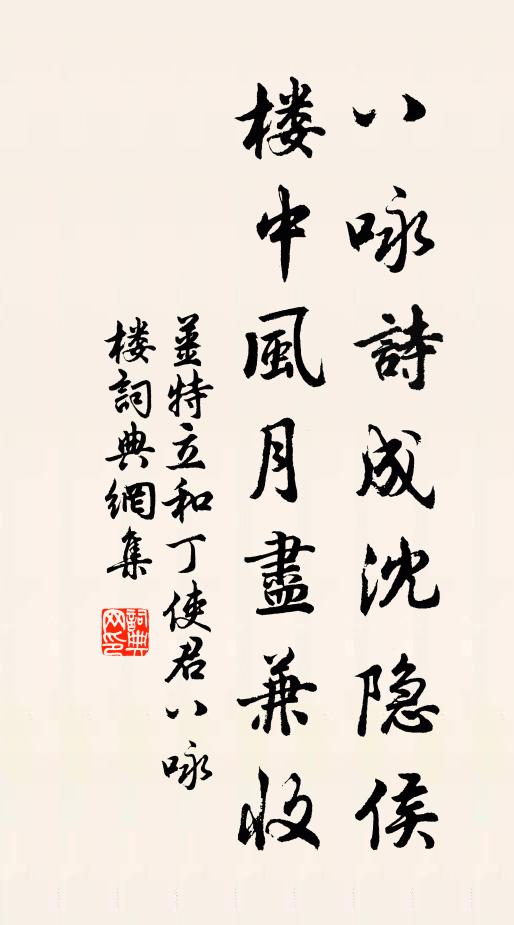 八咏詩成沈隐侯
楼中風月盡兼收
薑特立和丁使君八咏
楼詞典網集
詞典网印